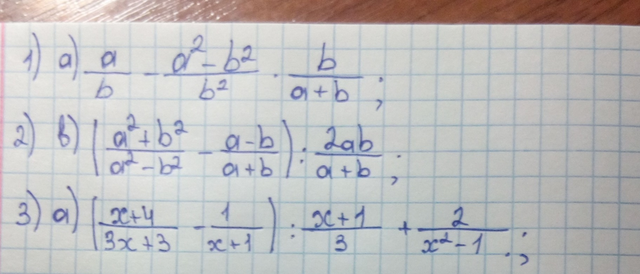 1) а) a/b - (a² - b²)/b² · b/(a+b);
2) в) ((a² + b²)/(a² - b²) - (a-b)/(a+b)) : 2ab/(a+b);
3) а) ((x+4)/(3x+3) - 1/(x+1)) : (x+1)/3 + 2/(x² - 1).;